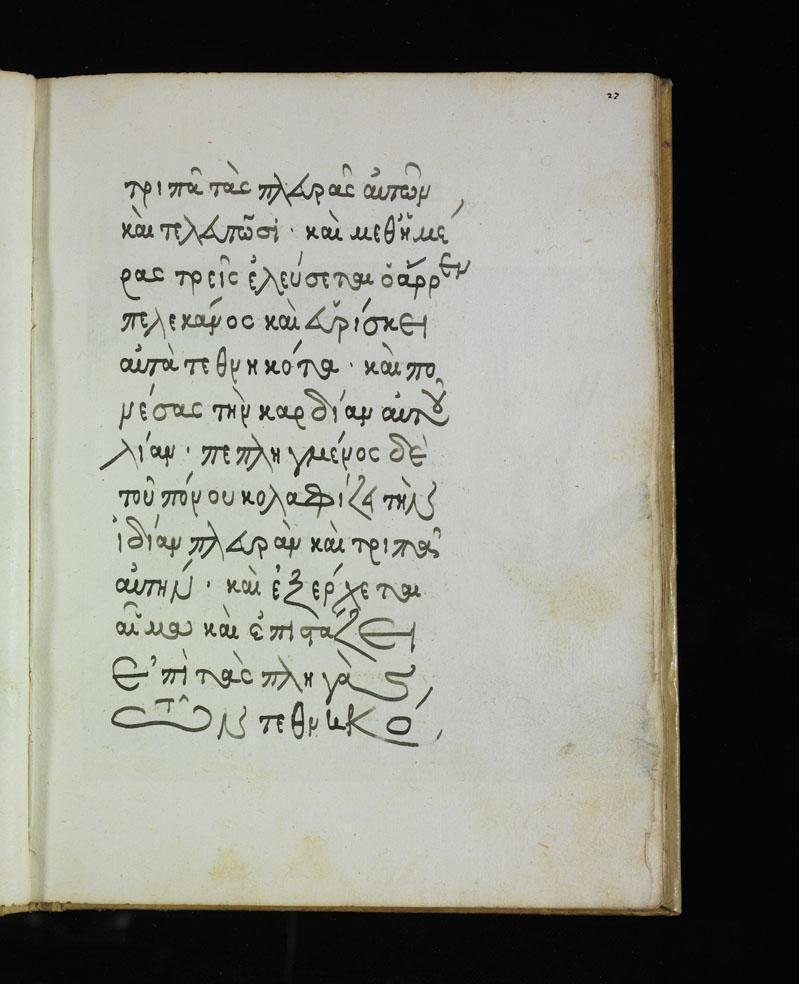 τριπᾶ τὰς πλευρᾶς αὐτῶν
καὶ τελευτῶσι · καὶ μεθ' ἡμέ
ρας τρεῖς ἐλεύσεται ὁ ἄρρεν
πελεκάνος καὶ εὑρίσκει
αὐτὰ τεθνηκότα · καὶ πο
νέσας τὴν καρδίαν αὐτοῦ
λίαν · πεπληγμένος δὲ
τοῦ πόνου κολαφίζει τὴν
ἰδίαν πλευρὰν καὶ τριπᾶ
αὐτὴν · καὶ ἐξέρχεται
αἷμα καὶ ἐπιστάζει
ἐπὶ τὰς πληγὰς
τῶν τεθνηκό